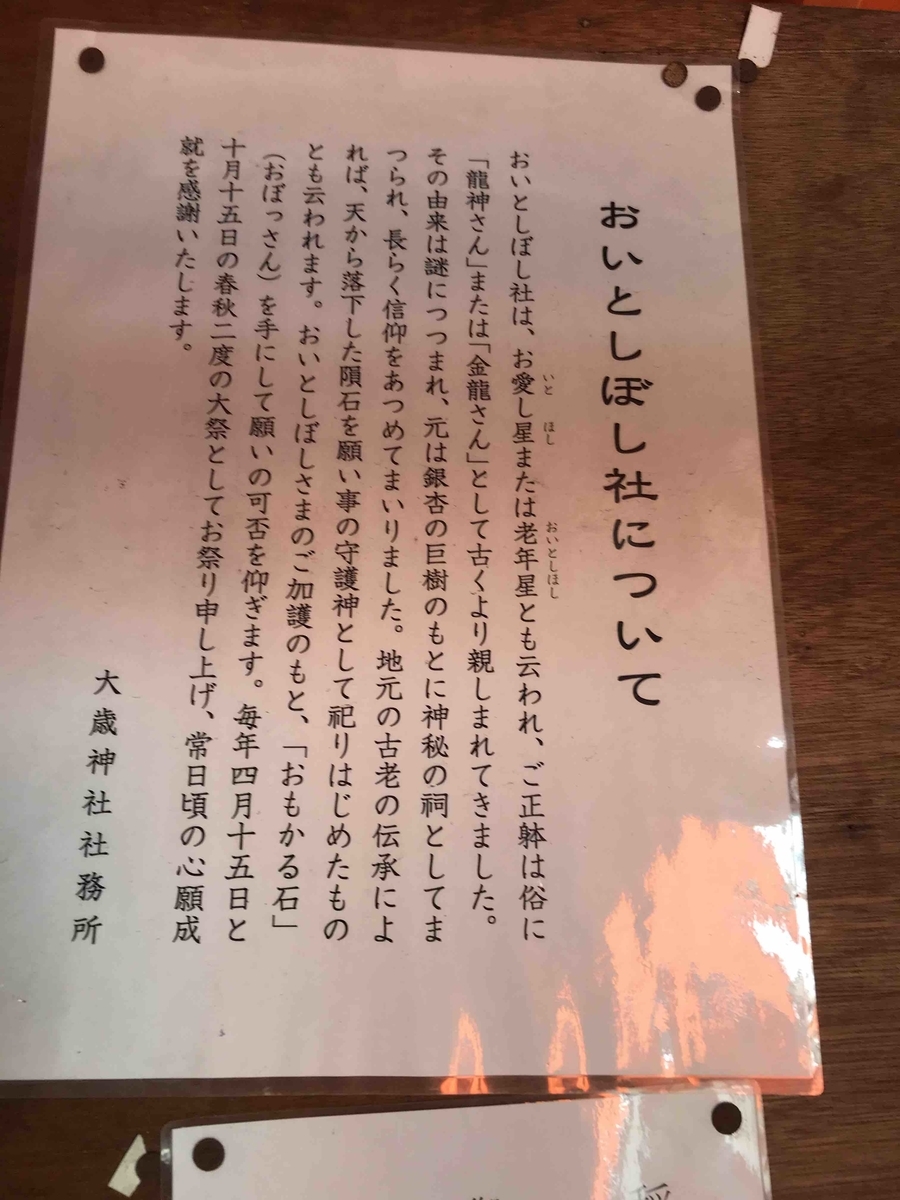 おいとしぼし社について
おいとしぼし社は、お愛し星または老年星とも云われ、ご正躰は俗に
いと
ほし
おいとしほし
「龍神さん」または「金龍さん」として古くより親しまれてきました。
その由来は謎につつまれ、元は銀杏の巨樹のもとに神秘の祠としてま
つられ、長らく信仰をあつめてまいりました。地元の古老の伝承によ
れば、天から落下した隕石を願い事の守護神として祀りはじめたもの
とも云われます。おいとしぼしさまのご加護のもと、「おもかる石」
（おぼっさん）を手にして願いの可否を仰ぎます。毎年四月十五日と
十月十五日の春秋二度の大祭としてお祭り申し上げ、常日頃の心願成
就を感謝いたします。
大歳神社社務所